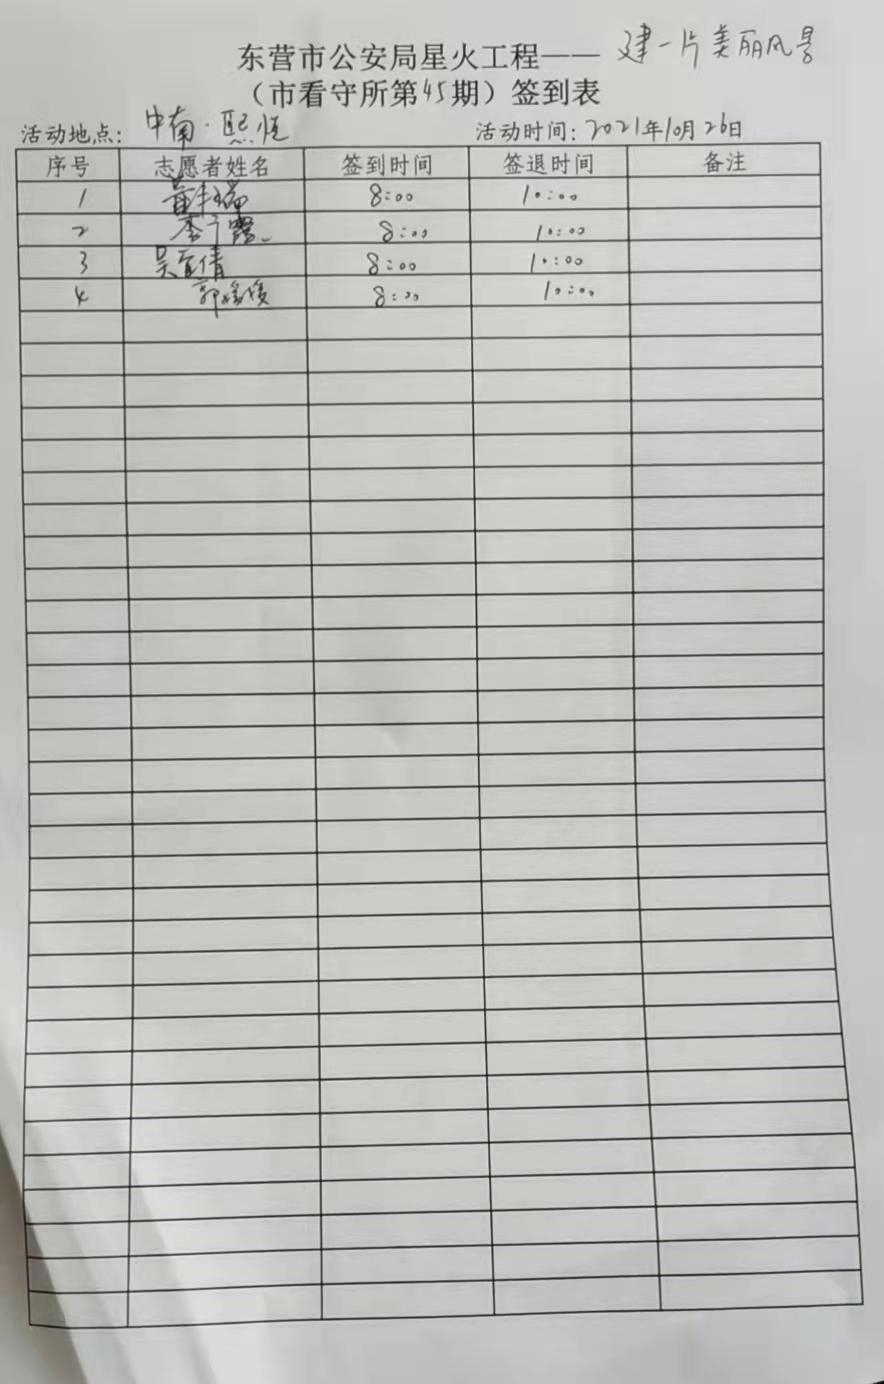 东营市公安局星火工程——建一片美丽风景
(市看守所第45期)签到表
活动地点: 中南·熙悦 活动时间: 2021年10月26日
序号 志愿者姓名 签到时间 签退时间 备注
1 8:00 10:00
2 李 霞 8:00 10:00
3 吴 倩 8:00 10:00
4 郭 媛 8:00 10:00